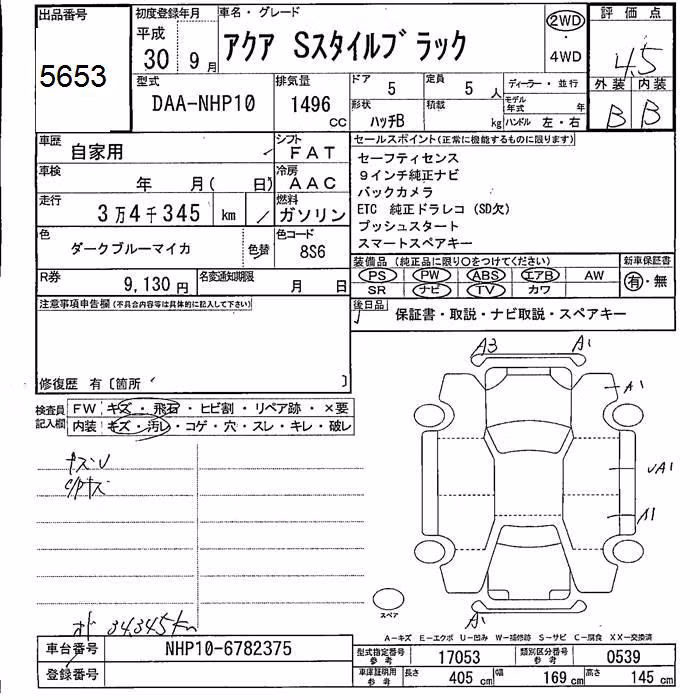 出品番号
5653
初度登録年月
平成
30年 9月
車名・グレード
アクア Sスタイルブラック
2WD
・
4WD
評価点
4.5
外装 内装
B B
型式
DAA-NHP10
排気量
1496
CC
ドア
5
定員
5人
ディーラー・並行
形状
ハッチB
積載
kg
モデル年式 年
ハンドル 左・右
車歴
自家用
シフト
FAT
車検
年 月( 日)
冷房
AAC
走行
3万4千345 km
燃料
ガソリン
色
ダークブルーマイカ
色替
色コード
8S6
R券
9,130円
名変通知期限
月 日
セールスポイント(正常に機能するものに限ります)
セーフティセンス
9インチ純正ナビ
バックカメラ
ETC 純正ドラレコ (SD欠)
プッシュスタート
スマートスペアキー
装備品 (純正品に限り○をつけてください)
PS PW ABS エアB AW
SR ナビ TV カワ
新車保証書
有・無
注意事項申告欄(不具合内容等は具体的に記入して下さい)
後日品
保証書・取説・ナビ取説・スペアキー
修復歴 有〔箇所 〕
検査員記入欄
FW キズ・飛石・ヒビ割・リペア跡・×要
内装 キズ・汚レ・コゲ・穴・スレ・キレ・破レ
キズU
C/Pキズ
A3 A1
A1
UA1
A1
A1
スペア
A-キズ E-エクボ U-凹み W-補修跡 S-サビ C-腐食 XX-交換済
34,345km
車台番号
NHP10-6782375
登録番号
型式指定番号参考
17053
類別区分番号参考
0539
車庫証明用参考
長さ 405cm 幅 169cm 高さ 145cm